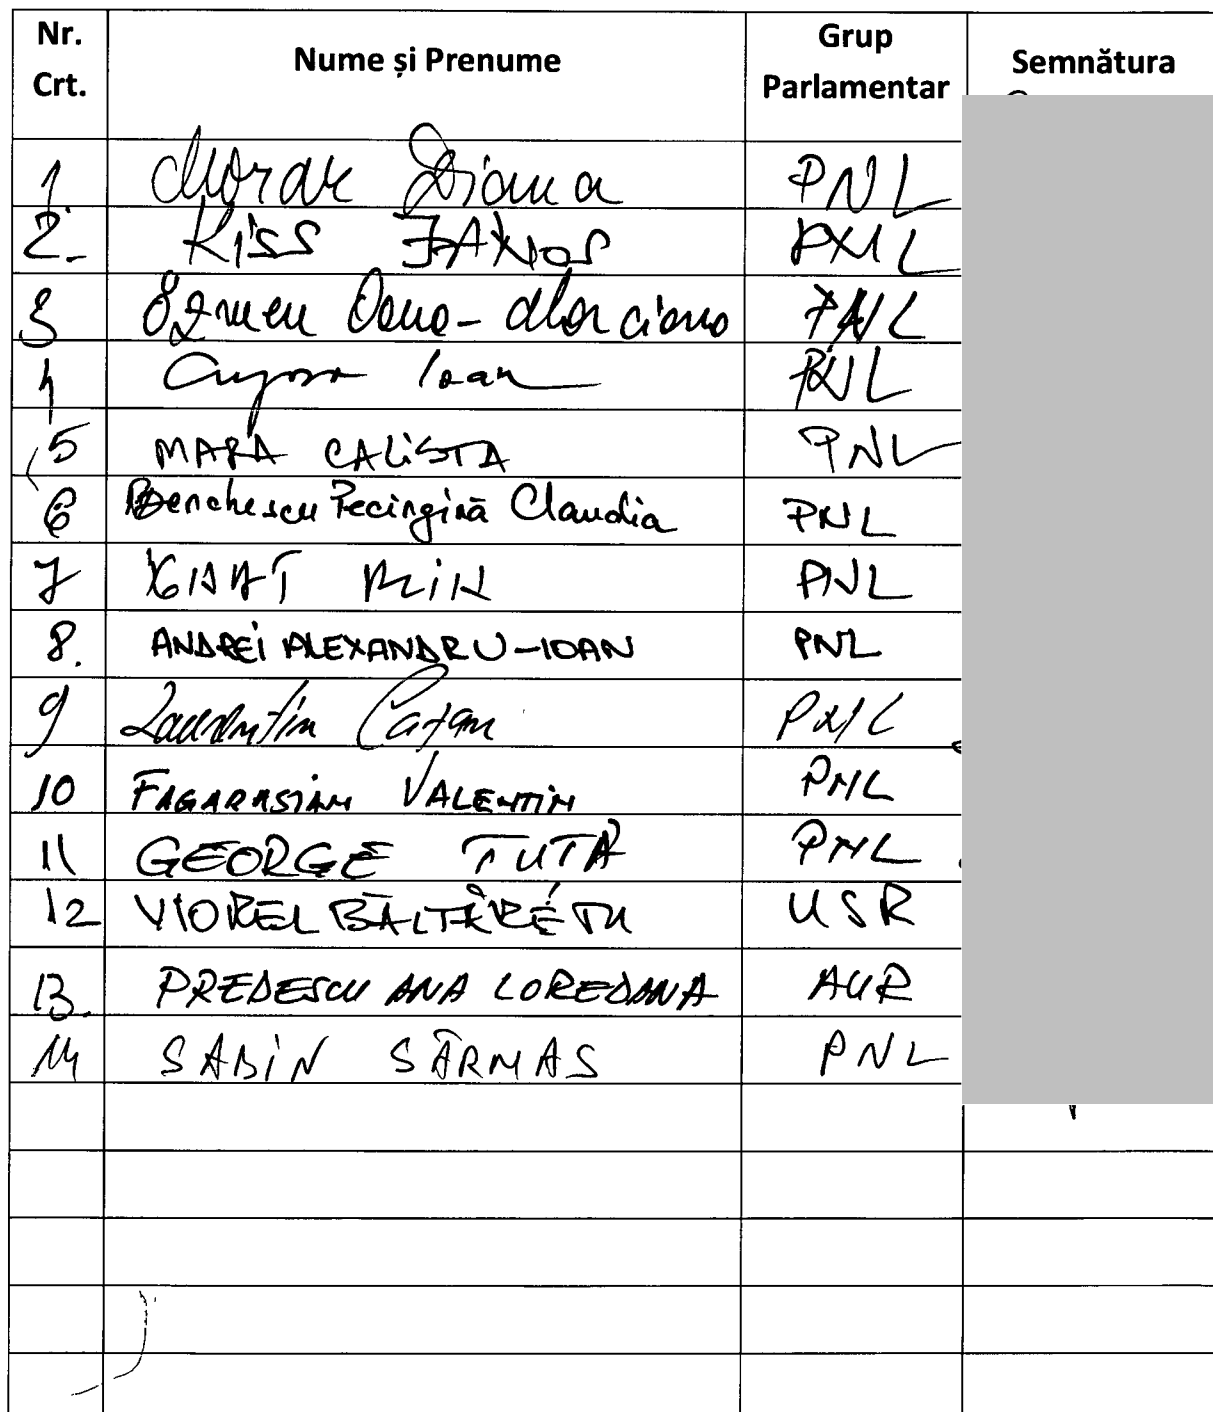 Nr. Crt. Nume și Prenume Grup Parlamentar Semnătura
1. Morar Diana PNL
2. Kiss JANOS PNL
3 Marciana PNL
4 Ioan PNL
5 MARA CALISTA PNL
6 Benchescu Pecingină Claudia PNL
7 PNL
8. ANDREI ALEXANDRU-IOAN PNL
9 PNL
10 FAGARASIAN VALENTIN PNL
11 GEORGE TUTĂ PNL
12 VIOREL BĂLTĂREȚU USR
13. PREDESCU ANA LOREDANA AUR
14 SABIN SĂRMAS PNL